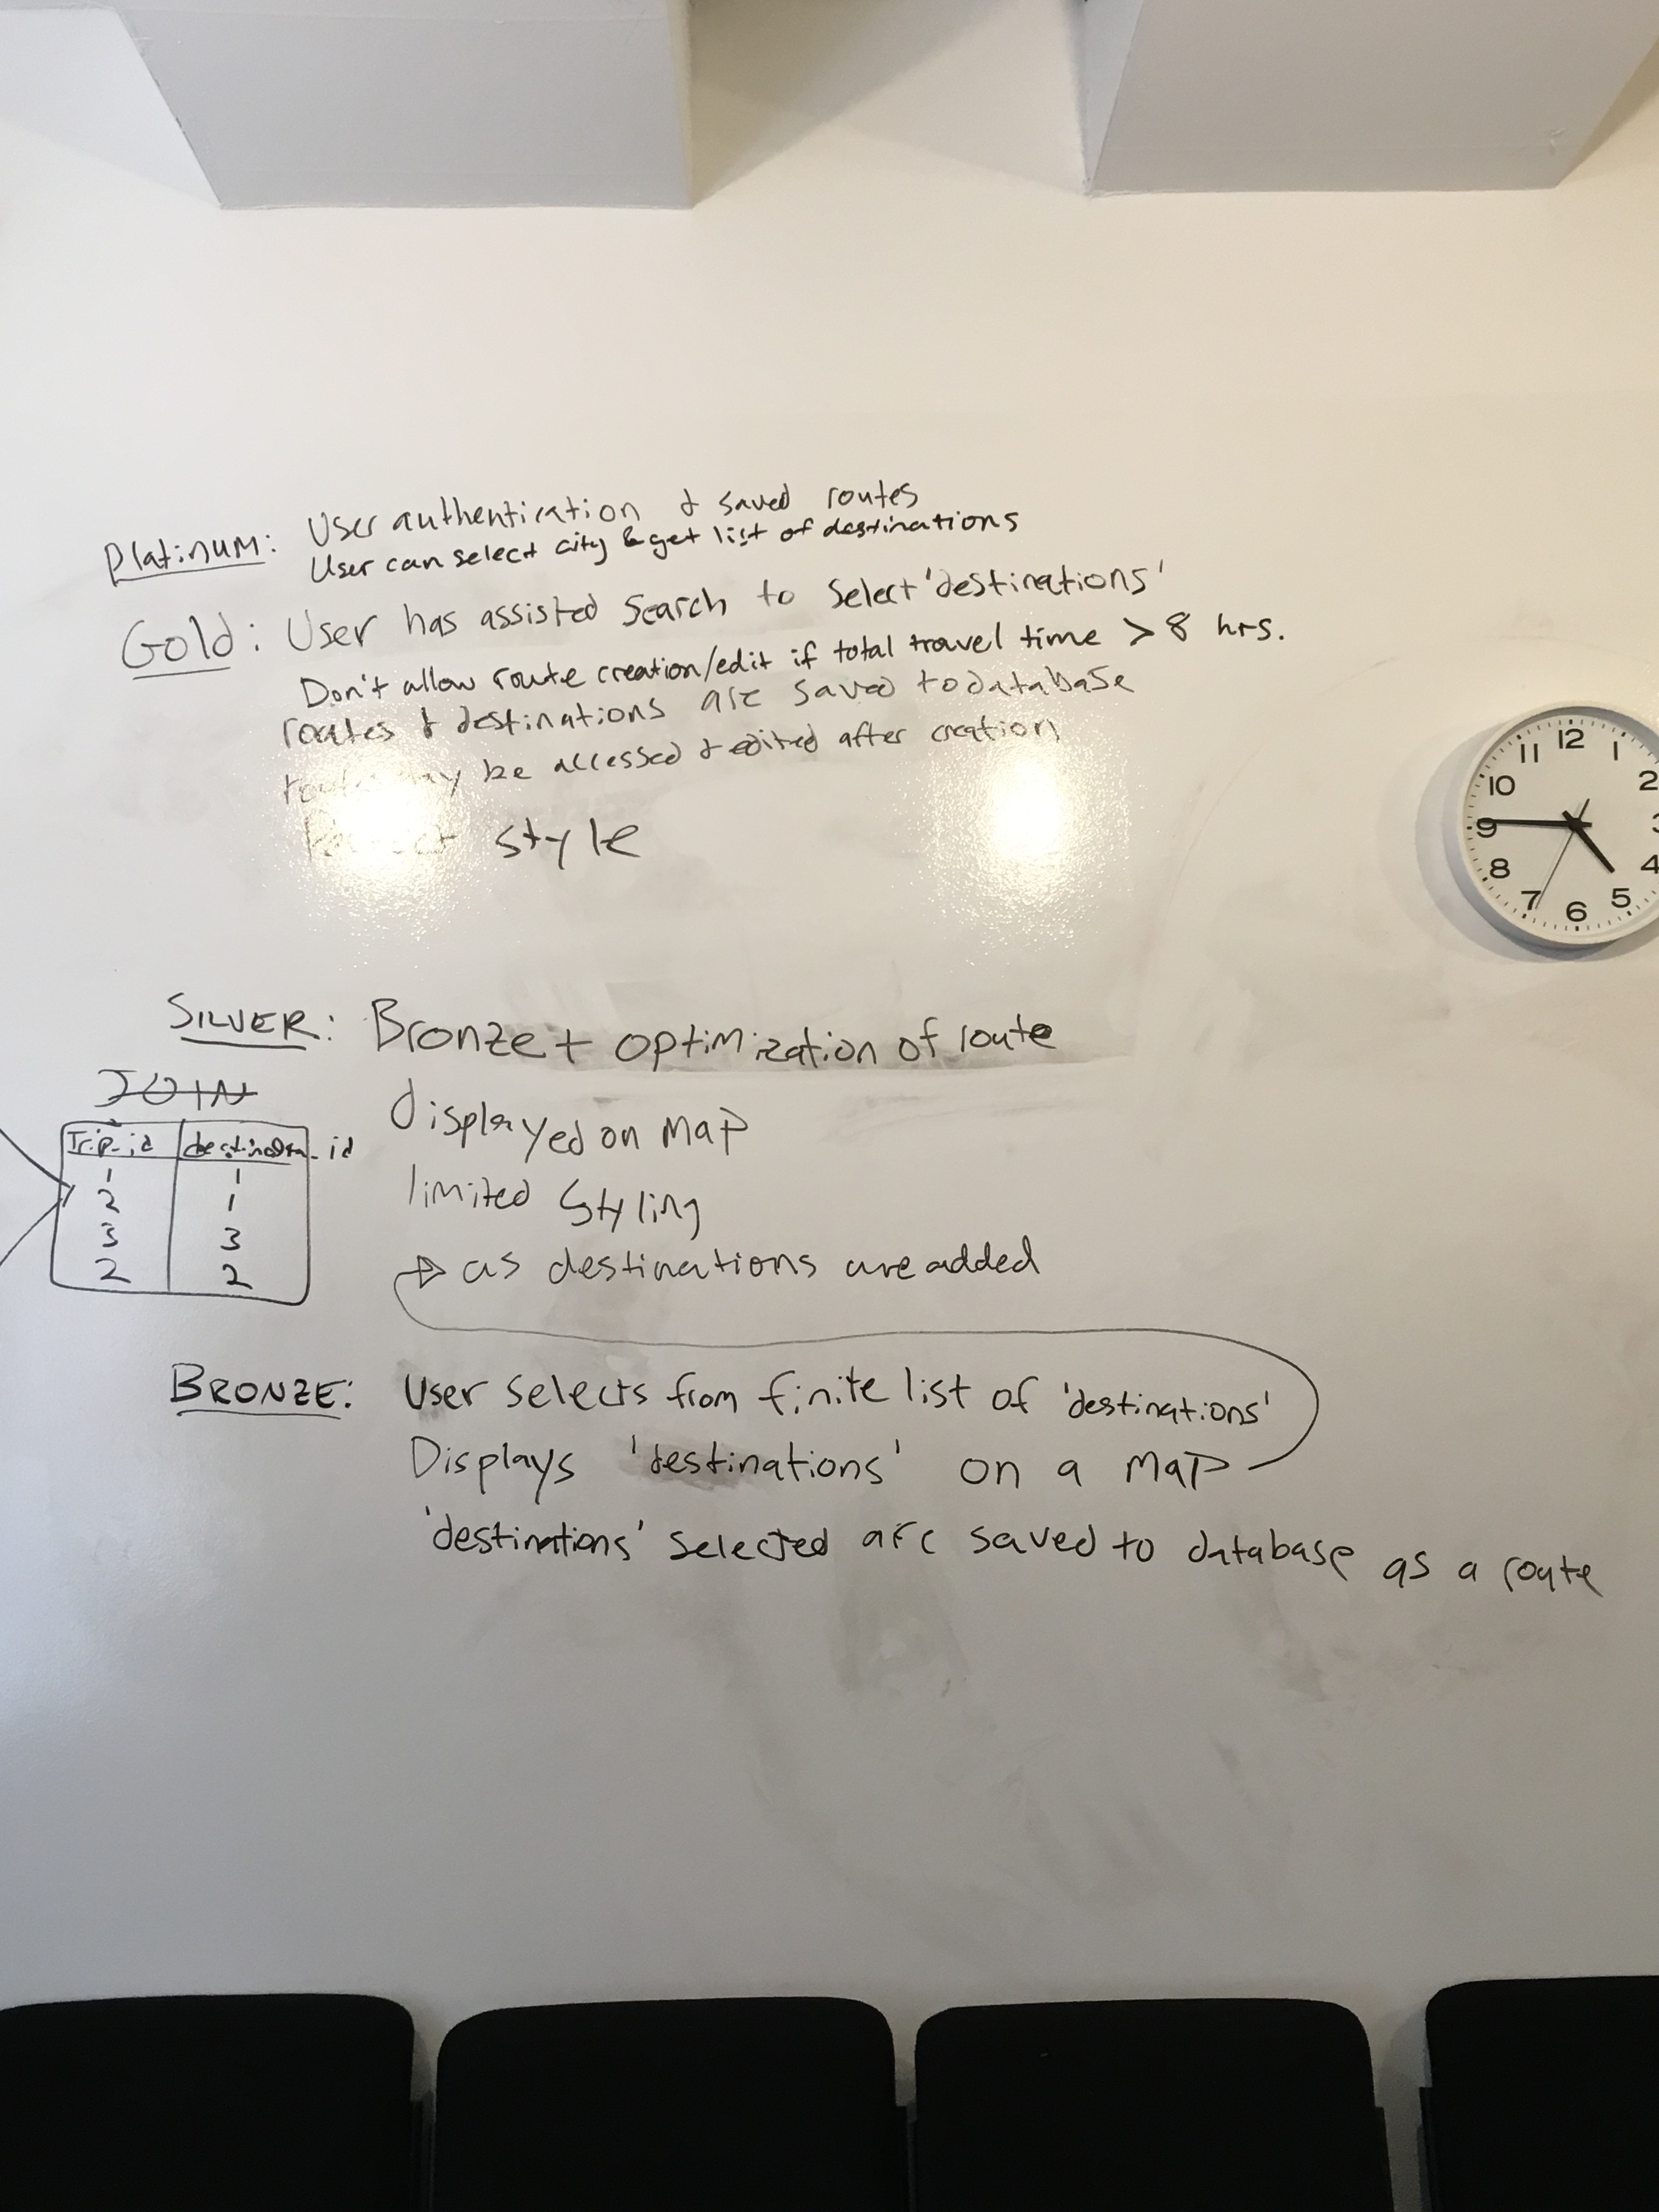 Platinum: User authentication & saved routes
User can select city & get list of destinations
Gold: User has assisted search to select 'destinations'
Don't allow route creation/edit if total travel time > 8 hrs.
routes & destinations are saved to database
routes may be accessed & edited after creation
style
SILVER: Bronze + optimization of route
displayed on map
limited styling
as destinations are added
JOIN
Trip_id destination_id
1 1
2 1
3 3
2 2
BRONZE: User selects from finite list of 'destinations'
Displays 'destinations' on a map
'destinations' selected are saved to database as a route
11 12 1
10 2
9 3
8 4
7 6 5